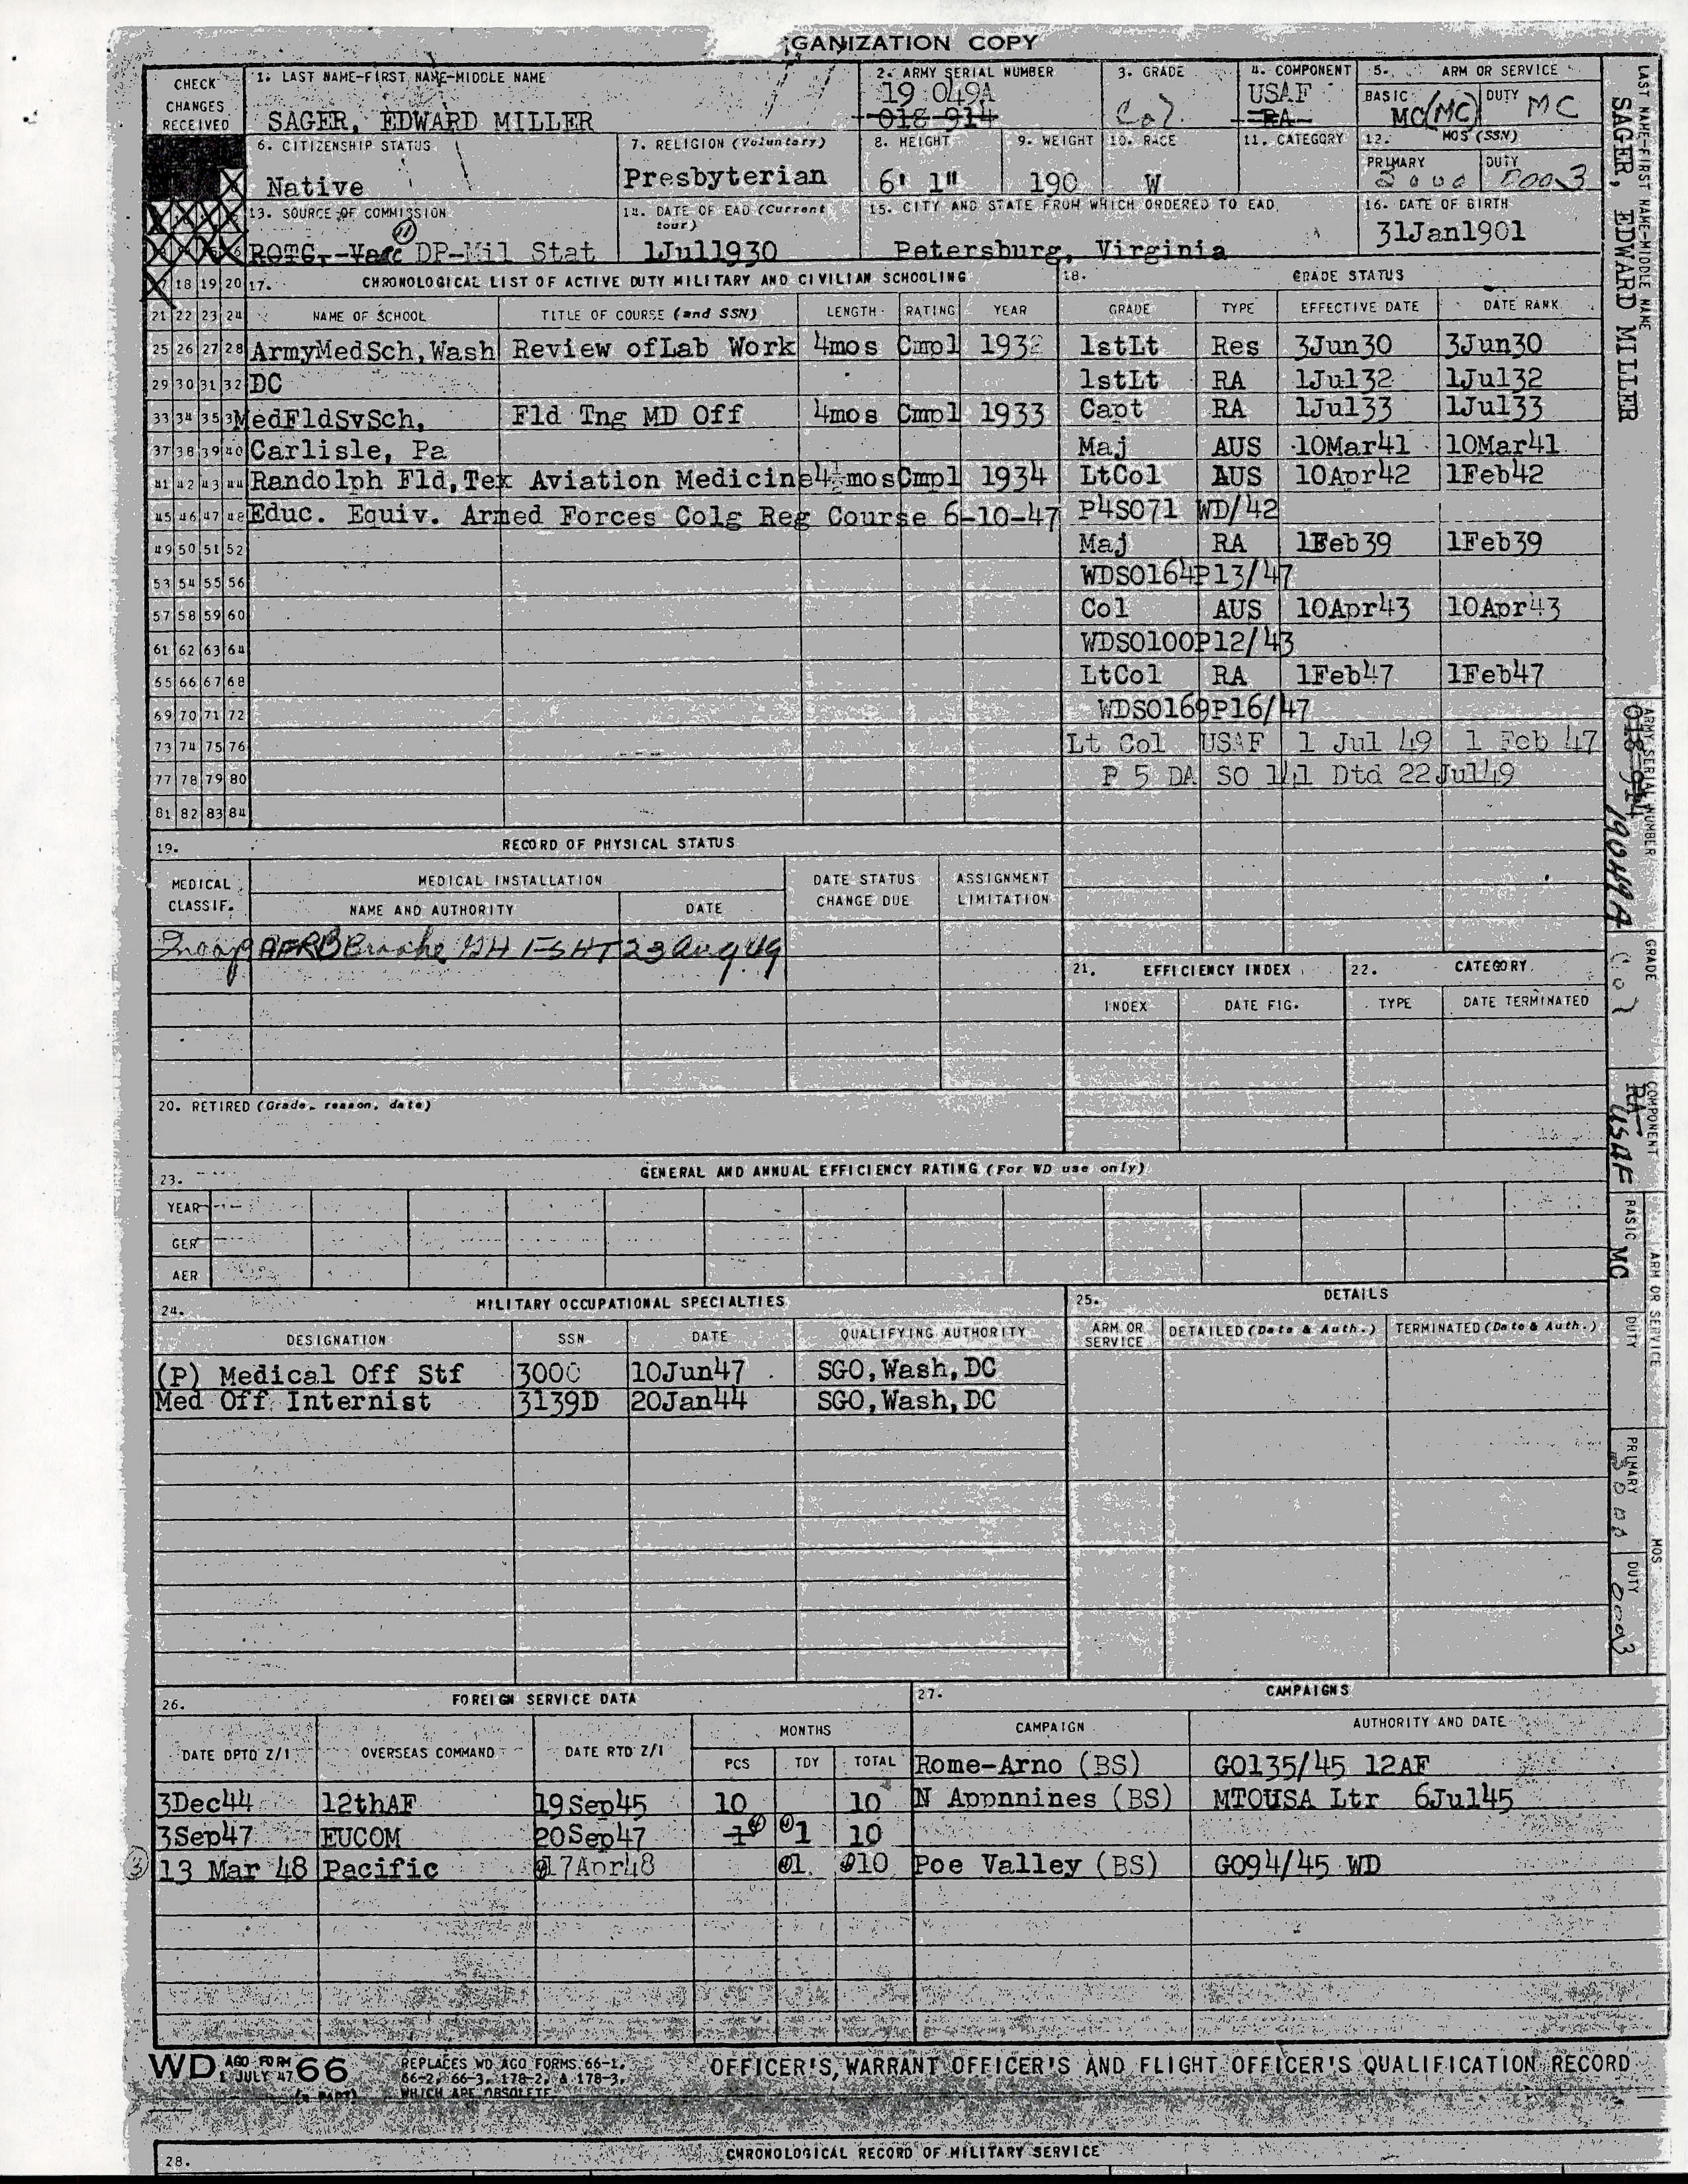 GANIZATION COPY
CHECK CHANGES RECEIVED
1. LAST NAME-FIRST NAME-MIDDLE NAME
SAGER, EDWARD MILLER
2. ARMY SERIAL NUMBER
19 049A
018 914
3. GRADE
Col
4. COMPONENT
USAF
RA
5. ARM OR SERVICE
BASIC MC(MC) DUTY MC
6. CITIZENSHIP STATUS
Native
7. RELIGION (Voluntary)
Presbyterian
8. HEIGHT
6' 1"
9. WEIGHT
190
10. RACE
W
11. CATEGORY
12. MOS (SSN)
PRIMARY DUTY
0003
13. SOURCE OF COMMISSION
ROTC, DP-Mil Stat
14. DATE OF EAD (Current tour)
1Jul1930
15. CITY AND STATE FROM WHICH ORDERED TO EAD
Petersburg, Virginia
16. DATE OF BIRTH
31Jan1901
17. CHRONOLOGICAL LIST OF ACTIVE DUTY MILITARY AND CIVILIAN SCHOOLING
NAME OF SCHOOL TITLE OF COURSE (and SSN) LENGTH RATING YEAR
ArmyMedSch,Wash Review ofLab Work 4mos Cmpl 1932
DC
MedFldSvSch, Fld Tng MD Off 4mos Cmpl 1933
Carlisle, Pa
Randolph Fld,Tex Aviation Medicine 4½mos Cmpl 1934
Educ. Equiv. Armed Forces Colg Reg Course 6-10-47
18 19 20
21 22 23 24
25 26 27 28
29 30 31 32
33 34 35 3
37 38 39 40
41 42 43 44
45 46 47 48
49 50 51 52
53 54 55 56
57 58 59 60
61 62 63 64
65 66 67 68
69 70 71 72
73 74 75 76
77 78 79 80
81 82 83 84
18. GRADE STATUS
GRADE TYPE EFFECTIVE DATE DATE RANK
1stLt Res 3Jun30 3Jun30
1stLt RA 1Jul32 1Jul32
Capt RA 1Jul33 1Jul33
Maj AUS 10Mar41 10Mar41
LtCol AUS 10Apr42 1Feb42
P4SO71 WD/42
Maj RA 1Feb39 1Feb39
WDSO164P13/47
Col AUS 10Apr43 10Apr43
WDSO100P12/43
LtCol RA 1Feb47 1Feb47
WDSO169P16/47
Lt Col USAF 1 Jul 49 1 Feb 47
P 5 DA SO 141 Dtd 22Jul49
19. RECORD OF PHYSICAL STATUS
MEDICAL CLASSIF. MEDICAL INSTALLATION DATE STATUS CHANGE DUE ASSIGNMENT LIMITATION
NAME AND AUTHORITY DATE
AFRB Brooke GH FSHT 23 Aug 49
20. RETIRED (Grade, reason, date)
21. EFFICIENCY INDEX
INDEX DATE FIG.
22. CATEGORY
TYPE DATE TERMINATED
23. GENERAL AND ANNUAL EFFICIENCY RATING (For WD use only)
YEAR
GER
AER
24. MILITARY OCCUPATIONAL SPECIALTIES
DESIGNATION SSN DATE QUALIFYING AUTHORITY
(P) Medical Off Stf 3000 10Jun47 SGO,Wash,DC
Med Off Internist 3139D 20Jan44 SGO,Wash,DC
25. DETAILS
ARM OR SERVICE DETAILED (Date & Auth.) TERMINATED (Date & Auth.)
26. FOREIGN SERVICE DATA
DATE DPTD Z/I OVERSEAS COMMAND DATE RTD Z/I MONTHS
PCS TDY TOTAL
3Dec44 12thAF 19Sep45 10 10
3Sep47 EUCOM 20Sep47 1 1 10
3 13 Mar 48 Pacific 17Apr48 01 010
27. CAMPAIGNS
CAMPAIGN AUTHORITY AND DATE
Rome-Arno (BS) GO135/45 12AF
N Appnnines (BS) MTOUSA Ltr 6Jul45
Poe Valley (BS) GO94/45 WD
WD AGO FORM 66
1 JULY 47
REPLACES WD AGO FORMS 66-1,
66-2, 66-3, 178-2, & 178-3,
WHICH ARE OBSOLETE
OFFICER'S, WARRANT OFFICER'S AND FLIGHT OFFICER'S QUALIFICATION RECORD
28. CHRONOLOGICAL RECORD OF MILITARY SERVICE
LAST NAME-FIRST NAME-MIDDLE NAME
SAGER, EDWARD MILLER
ARMY SERIAL NUMBER
018 914
19049A
GRADE
Col
COMPONENT
RA USAF
ARM OR SERVICE
BASIC MC DUTY
MOS
PRIMARY 3000 DUTY 0003